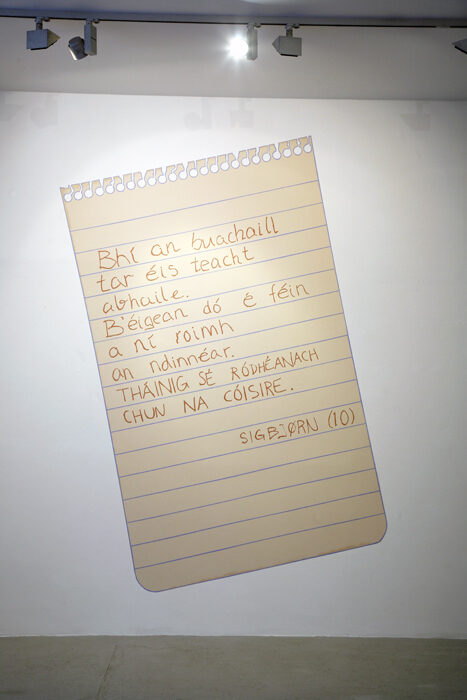 Bhí an buachaill
tar éis teacht
abhaile.
B'éigean dó é féin
a ní roimh
an ndinnéar.
THÁINIG SÉ RÓDHÉANACH
CHUN NA CÓISIRE.
SIGBJØRN (10)